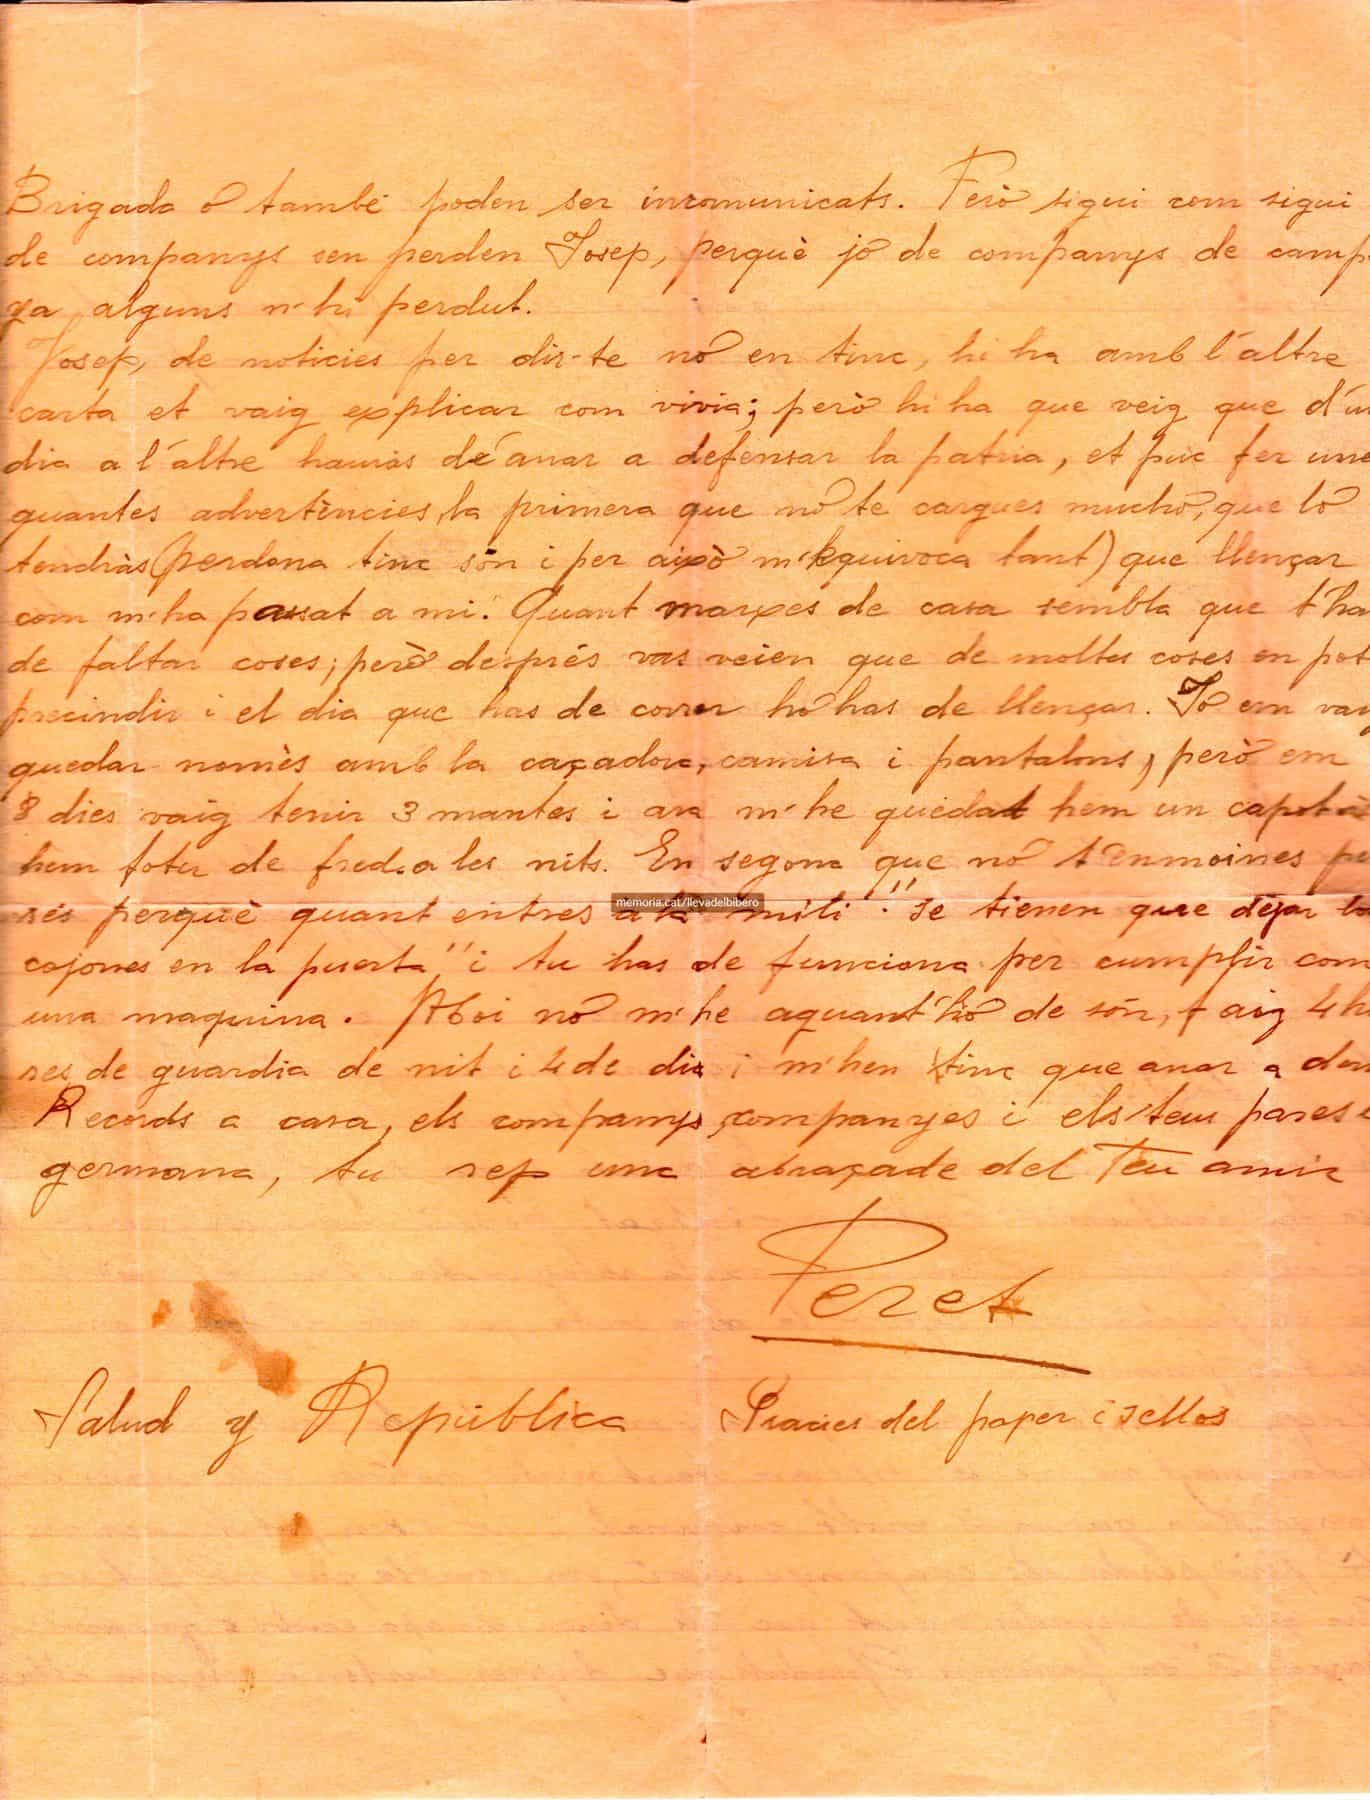 Brigada ó també poden ser incomunicats. Però sigui com sigui
de companys sen perden Josep, perquè jó de companys de camp
ya alguns n'hi perdut.
Josep, de noticies per dir-te nó en tinc, hi ha amb l'altre
carta et vaig explicar com vivia; però hi ha que veig que d'un
dia a l'altre hauràs de anar a defensar la patria, et puc fer une
quantes advertències, la primera que nó te cargues mucho, que ló
tendràs (perdona tinc són i per aixó m'equivoca tant) que llençar
com m'ha passat a mi. Quant marxes de casa sembla que t'ha
de faltar coses; però després vas veien que de moltes coses en pot
precindir i el dia que has de correr hó has de llençar. Jó em vaig
quedar només amb la caçadora, camisa i pantalons, però em
8 dies vaig tenir 3 mantes i ara m'he quedat hem un capota
hem fotu de fred a les nits. En segona que nó t'enmoines pe
rés perquè quant entres a la "mili". "Se tienen que dejar lo
cojones en la puerta" i tu has de funciona per cumplir com
una maquina. Aboi nó m'he aquant hó de són, faig 4 ho
res de guardia de nit i 4 de dia i m'hen tinc que anar a dor
Records a casa, els companys, companyes i els teus pares i
germana, tu rep una abraçade del Teu amic
Peret
Salud y República
Gracies del paper i sellos
memoria.cat/llevadelbibero